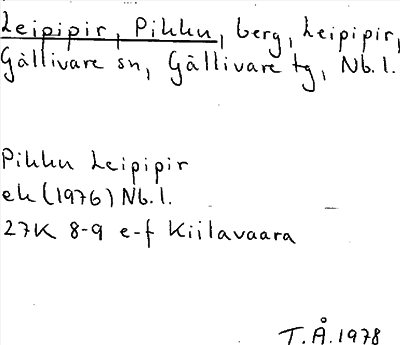 Leipipir, Pikku, berg, Leipipir,
Gällivare sn, Gällivare tg, Nb.l.
Pikku Leipipir
ek (1976) Nb.l.
27K 8-9 e-f Kiilavaara
T.Å.1978